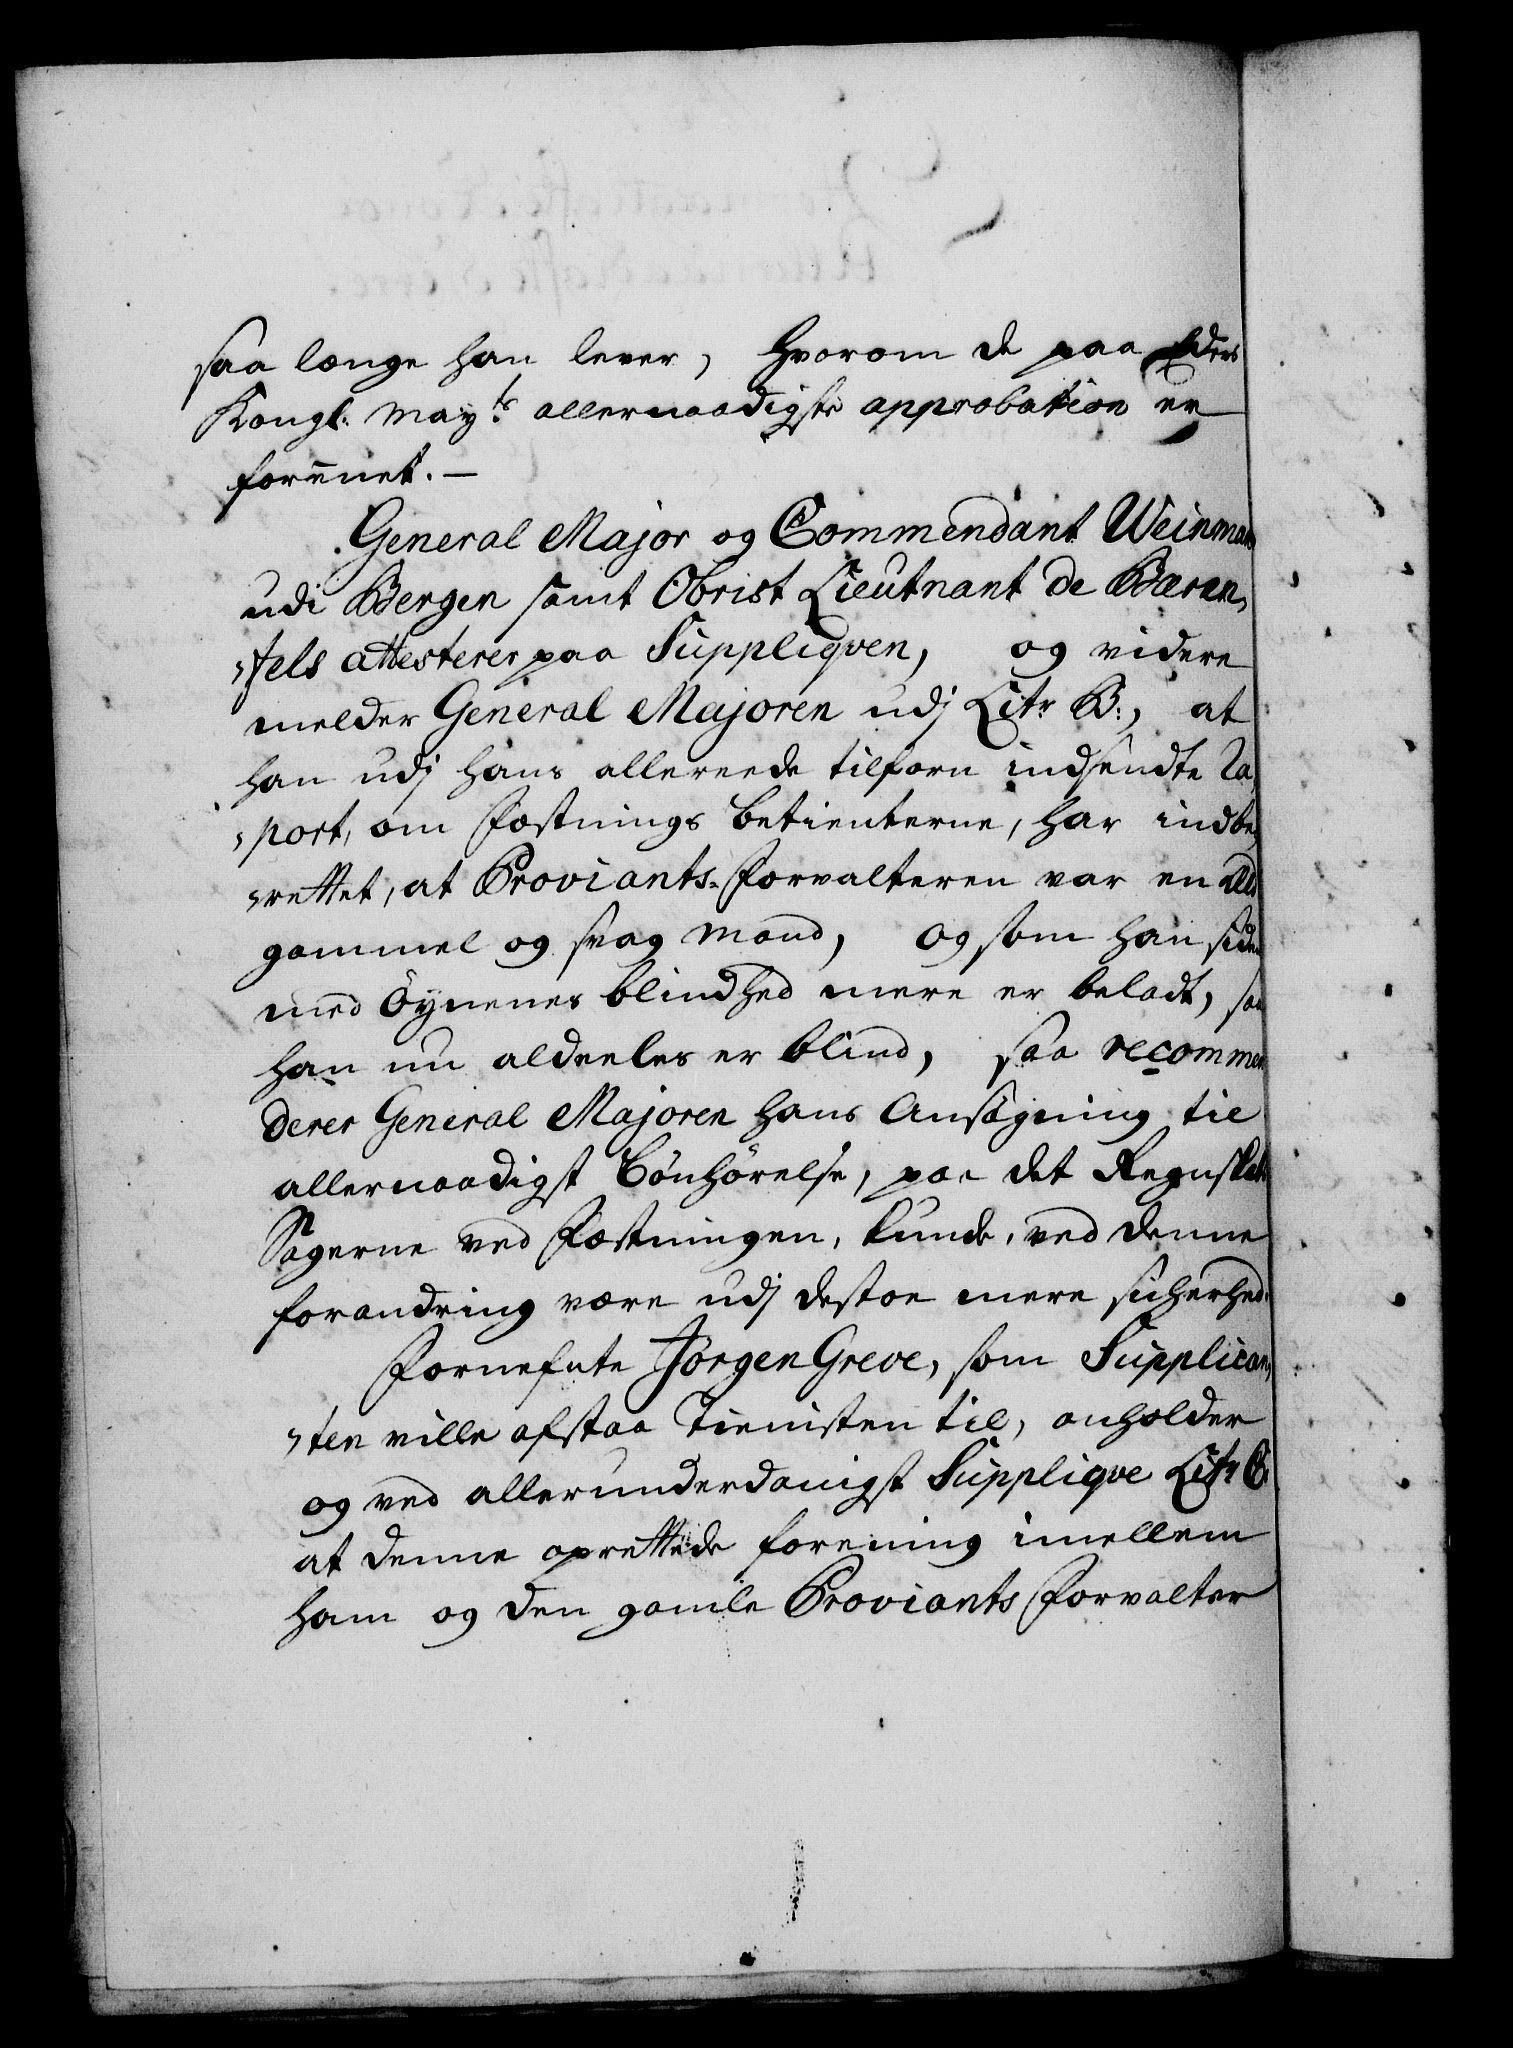 saa længe han lever, hvorom de paa Eders
Kongl: May:ts allernaadigste approbation er
foreenet. —
General Major og Commendant Weinman
udi Bergen samt Obrist Lieutnant de Bæren,
,fels attesterer paa Suppliqven, og videre
melder General Majoren udj Litr: B:, at
han udj hans allereede tilforn indsendte Ra,
,port, om Fæstnings betienterne, har indbe,
,rettet, at Proviants-Forvalteren var en
gammel og svag Mand, og som han siden
med Öynenes blindhed mere er beladt, saa
han nu aldeeles er blind, saa recommen
derer General Majoren hans Ansögning til
allernaadigst bönhörelse, paa det Regnskabs
Sagerne ved Fæstningen, kunde, ved denne
forandring være udj destoe mere sicherhed.
Fornefnte Jörgen Greve, som Supplican,
,ten ville afstaa Tienisten til, anholder
og ved allerunderdanigst Supplique Litr C.
at denne oprettede forening imellem
ham og den gamle Proviants Forvalter